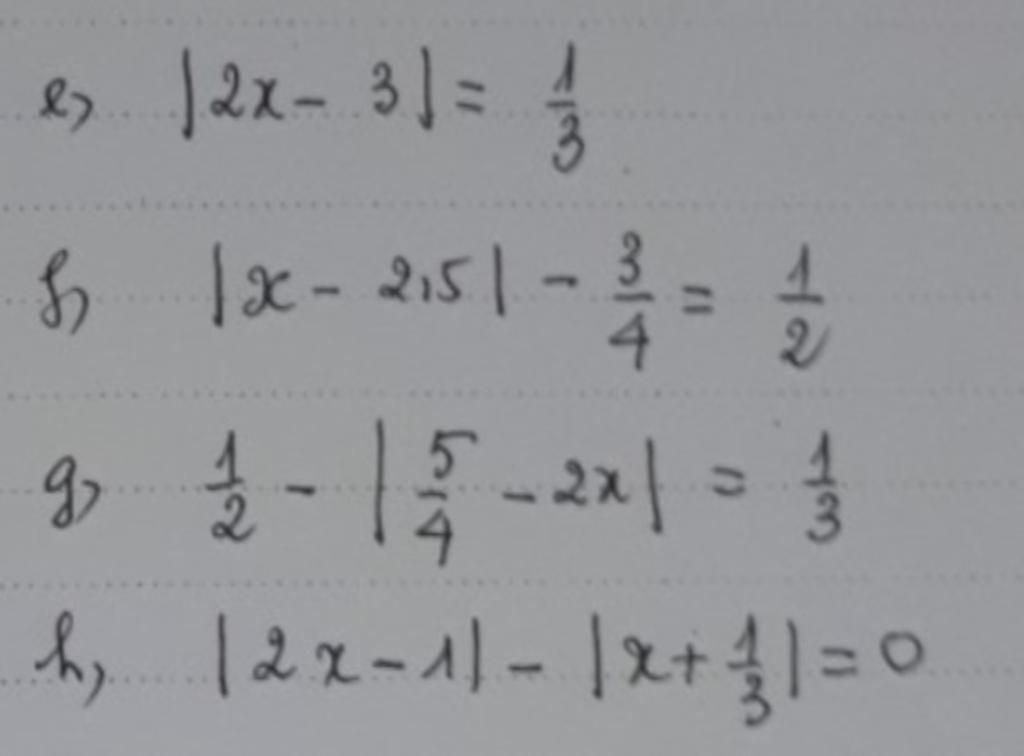 e, |2x - 3| = 1/3
f, |x - 2,5| - 3/4 = 1/2
g, 1/2 - |5/4 - 2x| = 1/3
h, |2x - 1| - |x + 1/3| = 0